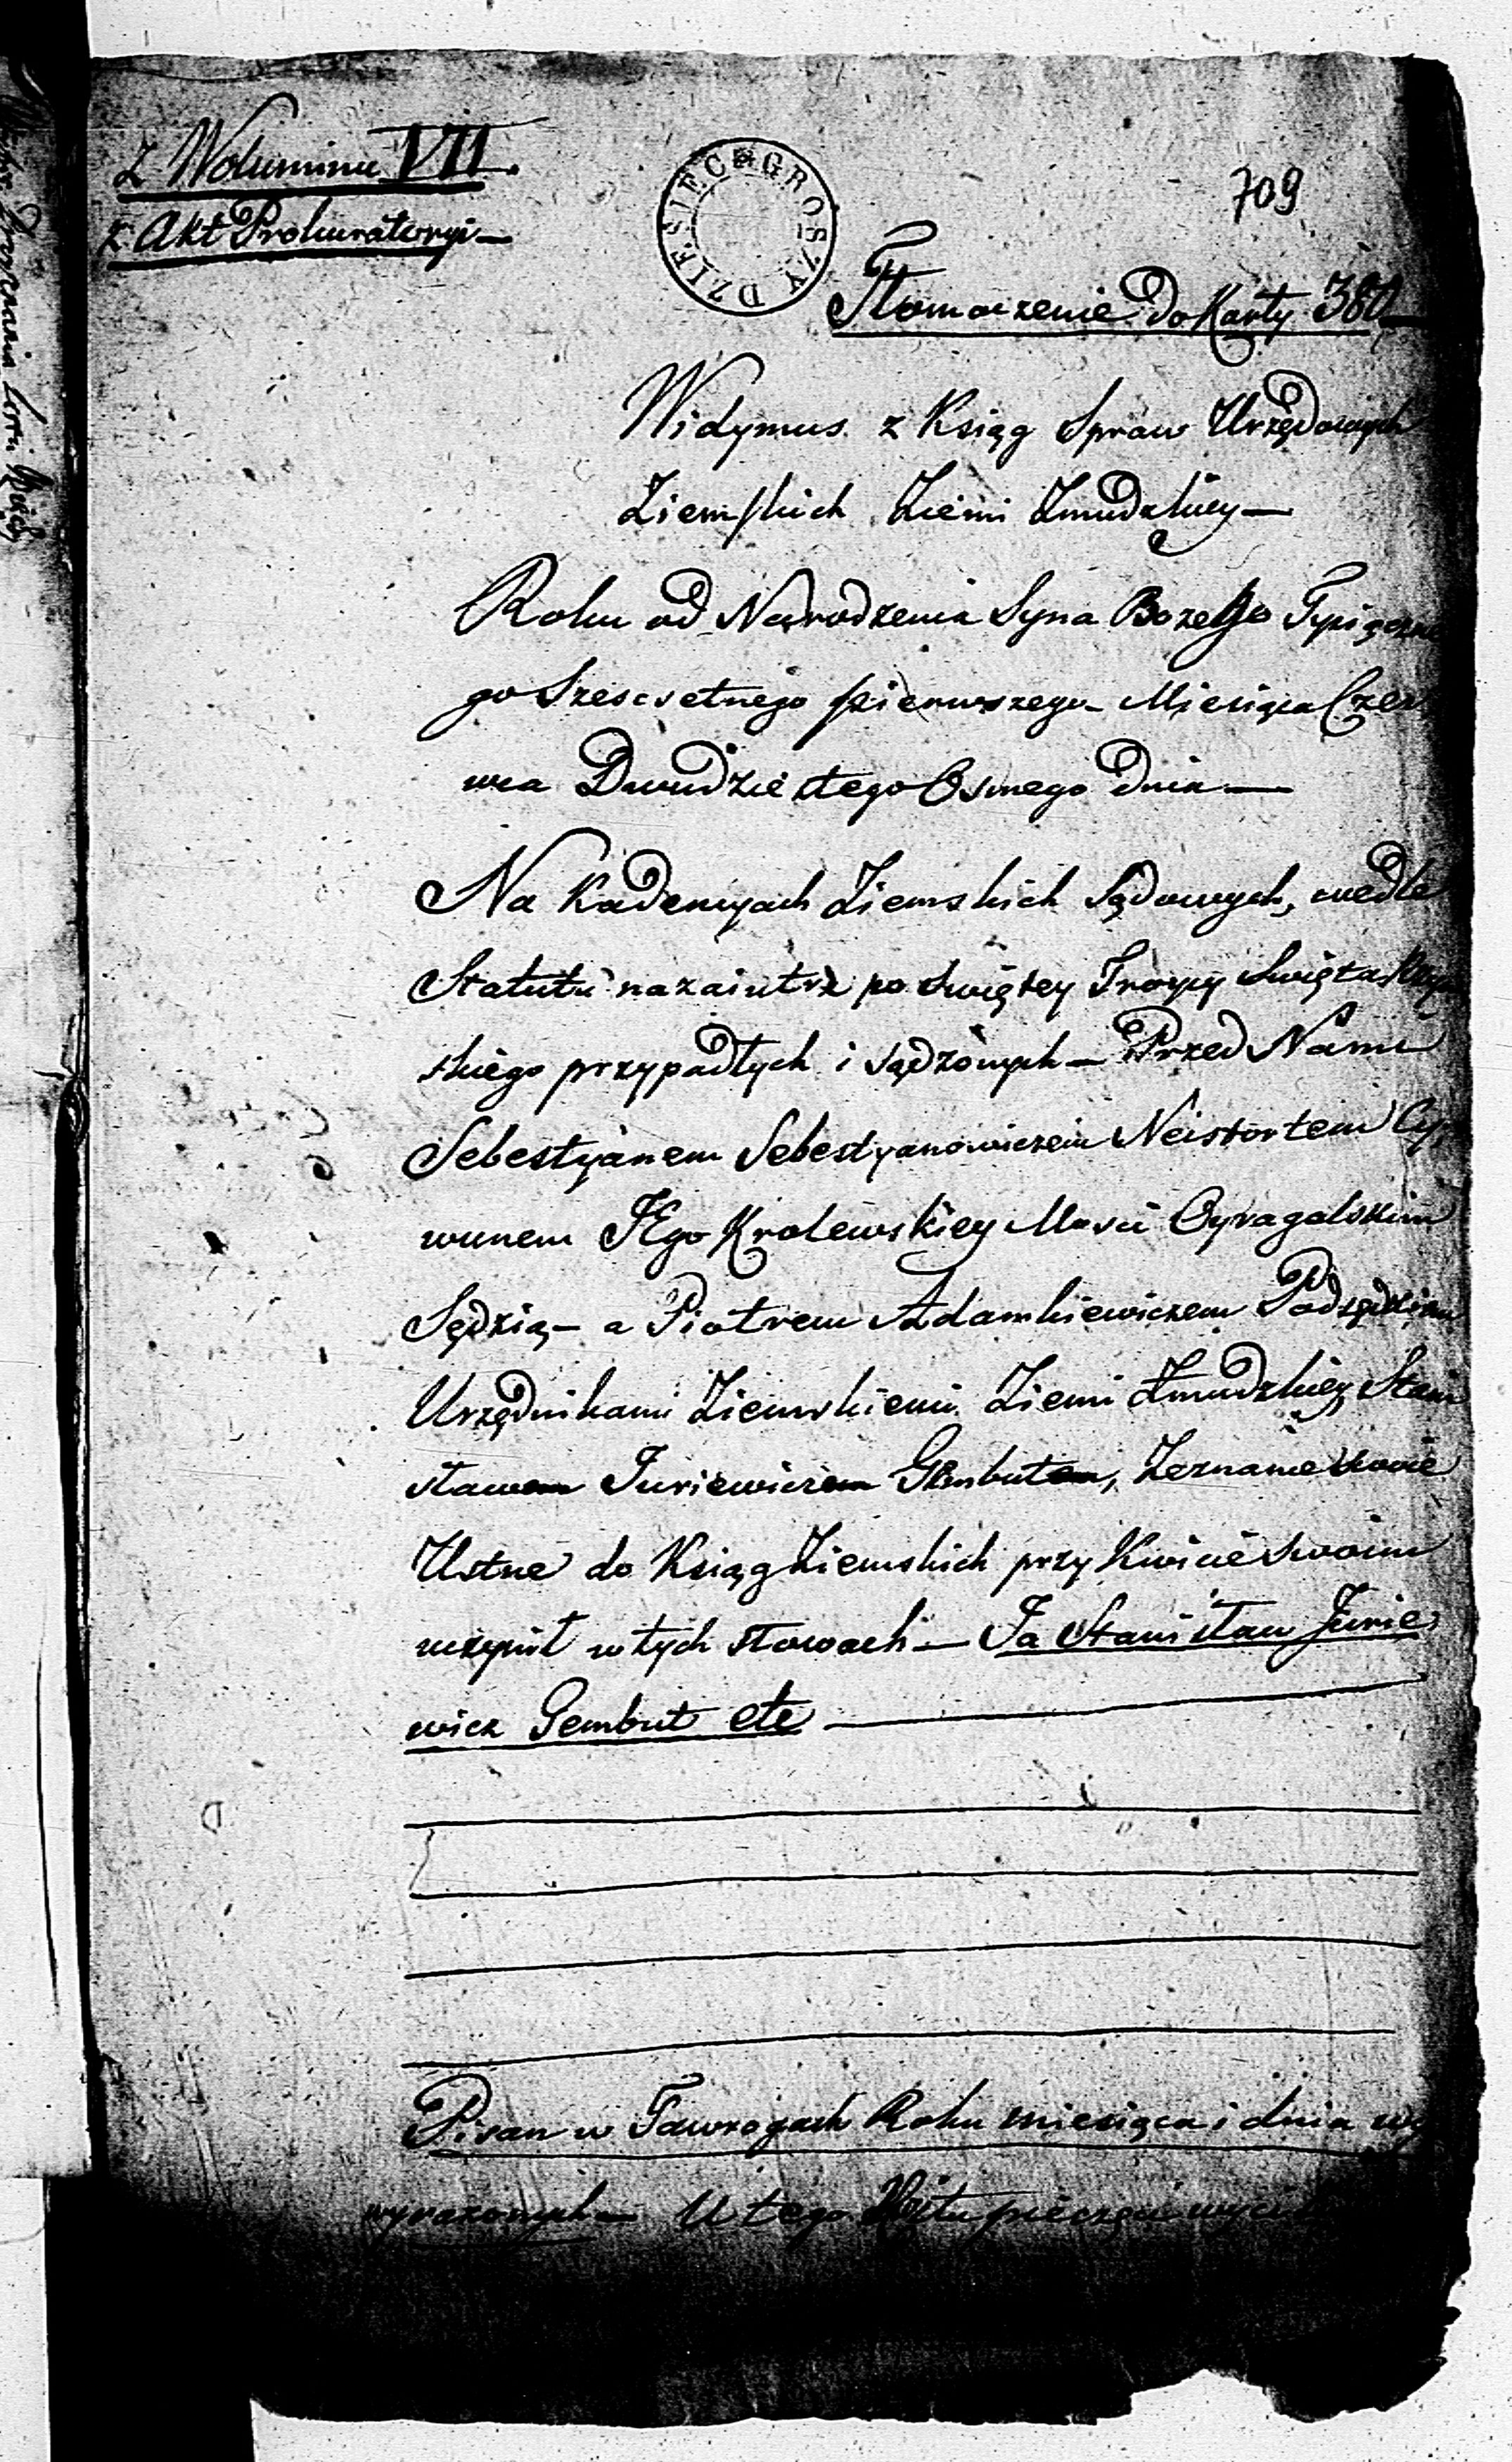 Z Woluminu VII.
z Akt Prokuratoryi —
DZIESIEC GROSZY
709
Tłomaczenie do Karty 380 —
Widymus z Ksiąg Spraw Urzędowych
Ziemskich Ziemi Zmudzkiey —
Roku od Narodzenia Syna Bozego Tysiączne
go Szescsetnego pierwszego Miesiąca Czer
wca Dwudziestego Osmego Dnia —
Na Kadencyach Ziemskich Sądowych, wedle
Statutu nazaiutrz po Swiętey Troycy Swięta Rzym
skiego przypadłych i sądzonych — Przed Nami
Sebestyanem Sebestyanowiczem Neistortem Cy
wunem JEgo Krolewskiey Mosci Ayragolskim
Sędzią — a Piotrem Adamkiewiczem Podsędkiem
Urzędnikami Ziemskiemi Ziemi Zmudzkiey Stani
sław Juriewicz Gembut, Zeznanie swoie
Ustne do Ksiąg Ziemskich przy Kwicie swoim
uczynił w tych słowach — Ja Stanisław Jurie
wicz Gembut etc —
Pisan w Tawrogach Roku miesiąca i dnia wy
wyrazonych — U tego Kwitu pieczęci